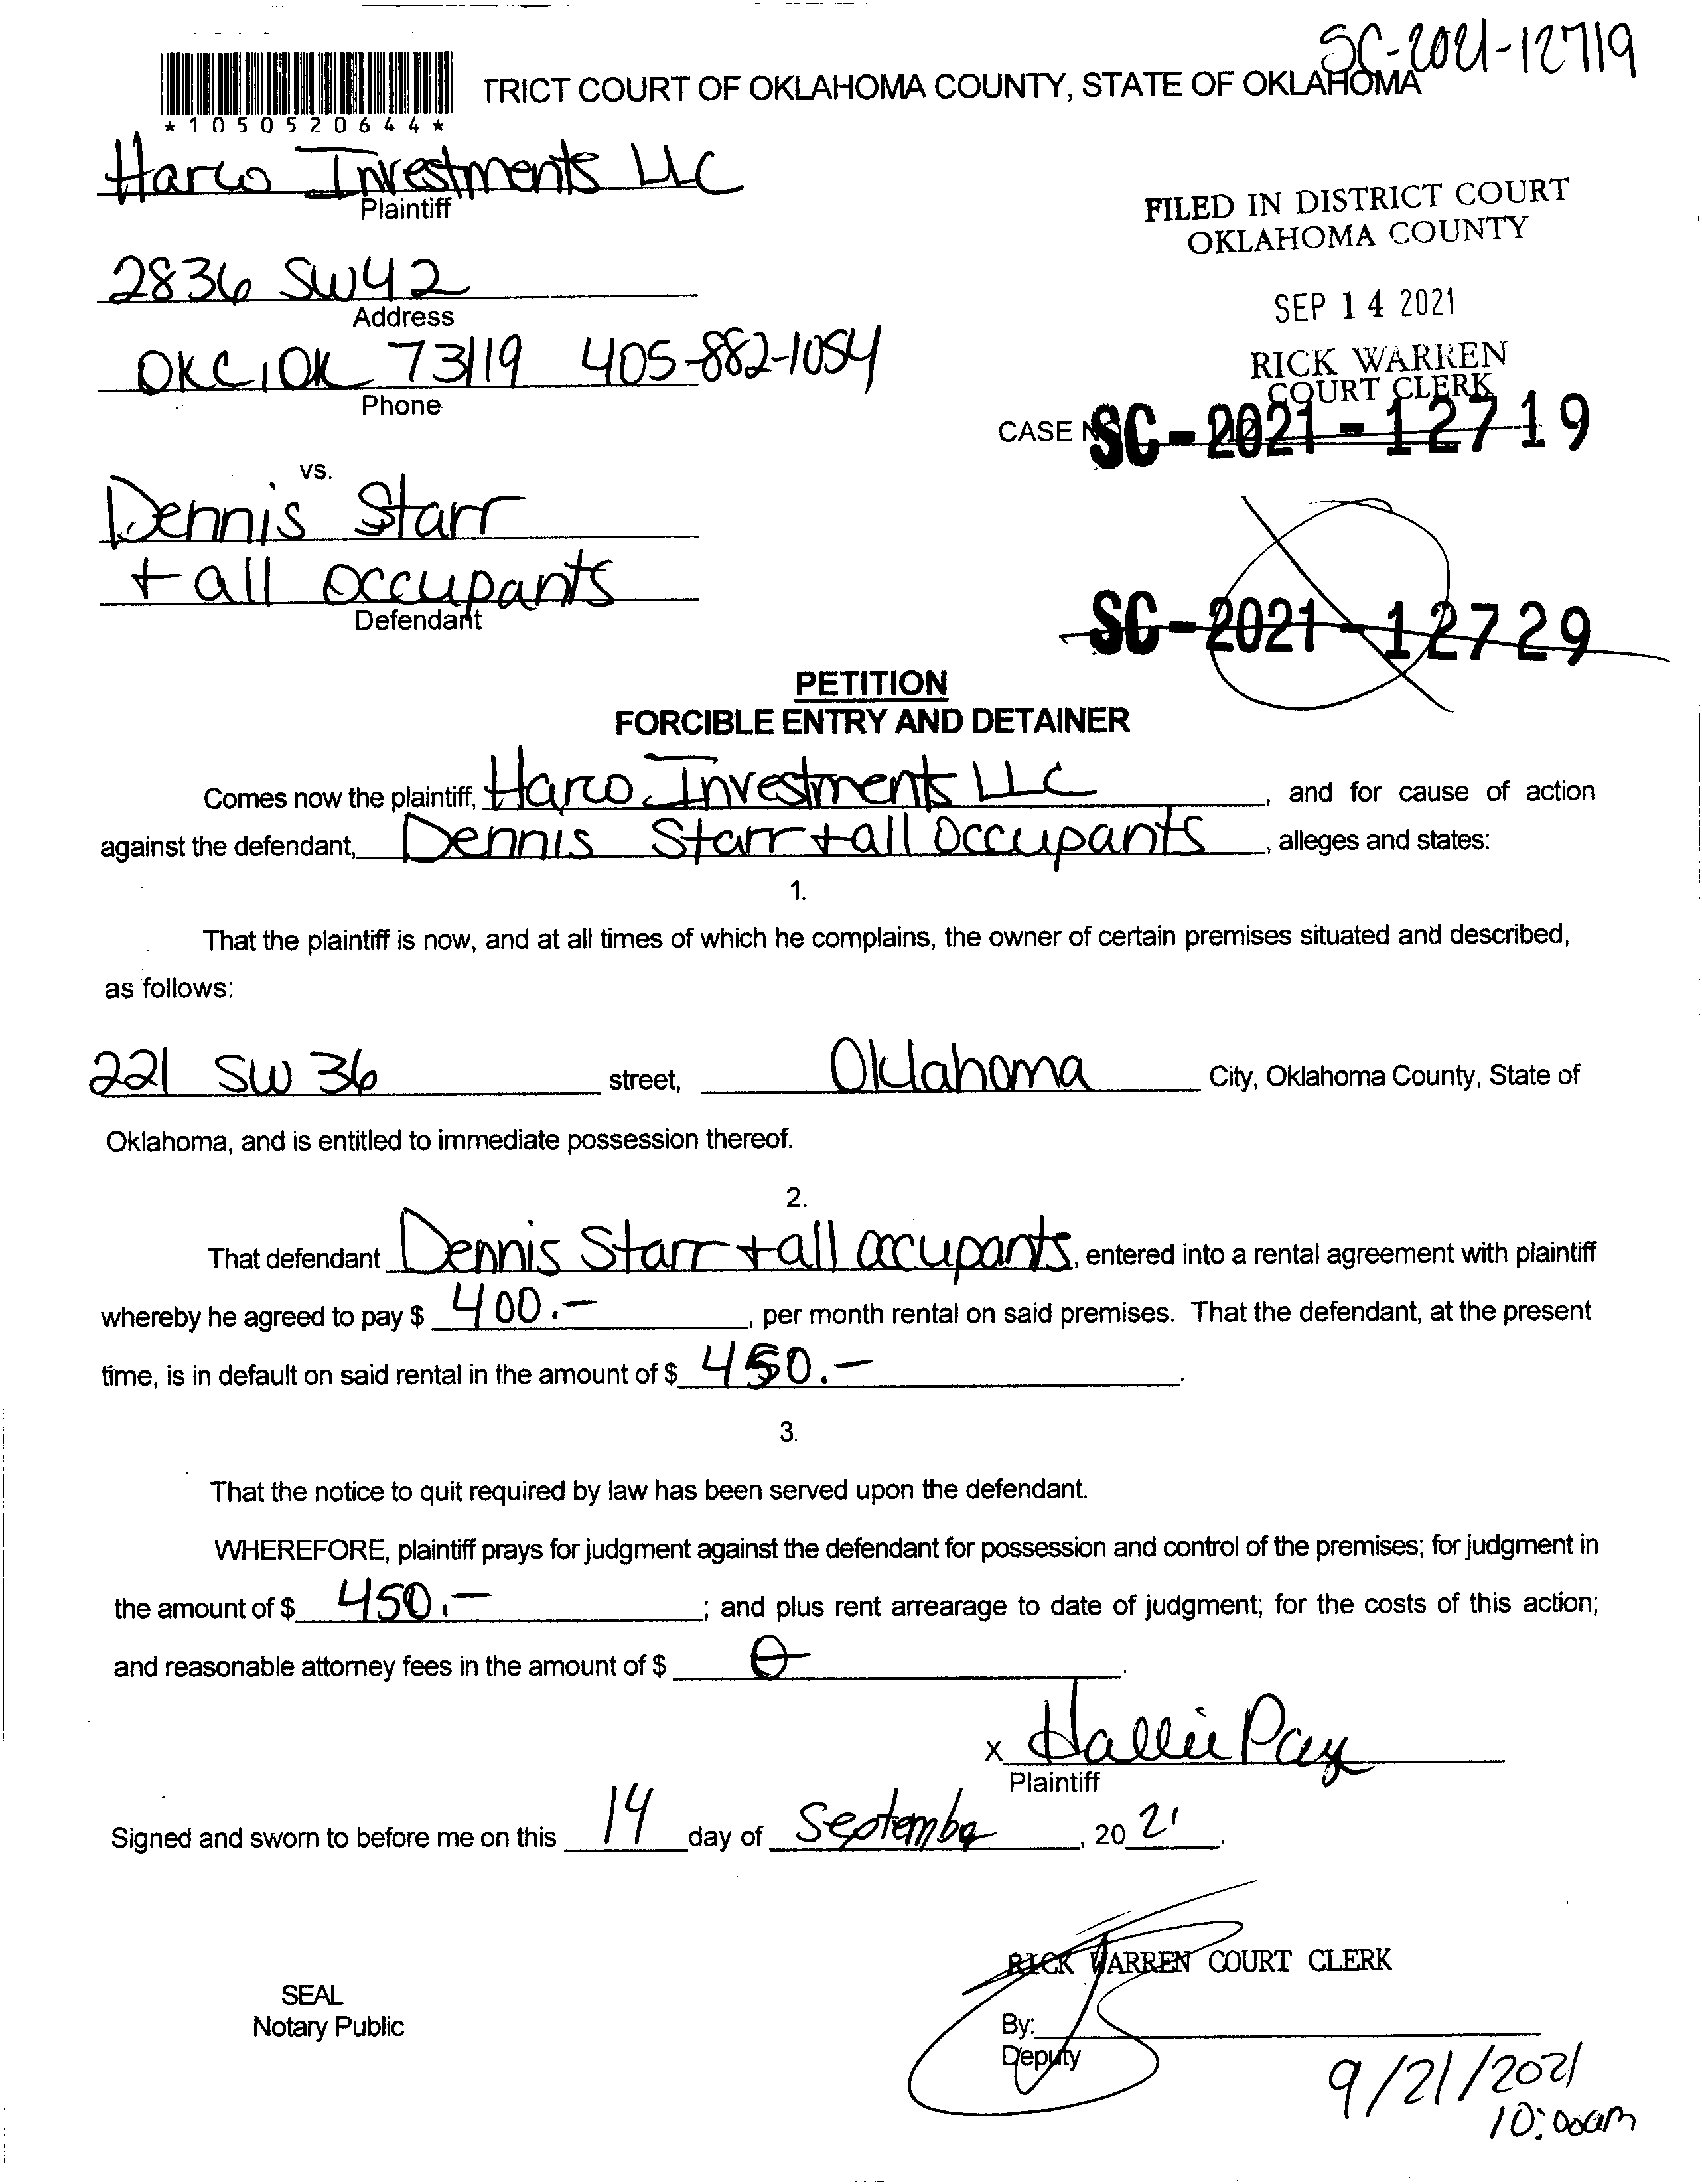 SC-2021-12719
TRICT COURT OF OKLAHOMA COUNTY, STATE OF OKLAHOMA
*1050520644*
Harco Investments LLC
Plaintiff
FILED IN DISTRICT COURT
OKLAHOMA COUNTY
2836 SW 42
Address
SEP 14 2021
OKC, OK 73119 405-882-1054
Phone
RICK WARREN
COURT CLERK
CASE NO. SC-2021-12719
vs.
Dennis Starr
+ all occupants
Defendant
SC-2021-12729
PETITION
FORCIBLE ENTRY AND DETAINER
Comes now the plaintiff, Harco Investments LLC, and for cause of action
against the defendant, Dennis Starr + all Occupants, alleges and states:
1.
That the plaintiff is now, and at all times of which he complains, the owner of certain premises situated and described,
as follows:
221 SW 36 street, Oklahoma City, Oklahoma County, State of
Oklahoma, and is entitled to immediate possession thereof.
2.
That defendant Dennis Starr + all occupants, entered into a rental agreement with plaintiff
whereby he agreed to pay $ 400.-, per month rental on said premises. That the defendant, at the present
time, is in default on said rental in the amount of $ 450.-.
3.
That the notice to quit required by law has been served upon the defendant.
WHEREFORE, plaintiff prays for judgment against the defendant for possession and control of the premises; for judgment in
the amount of $ 450.-; and plus rent arrearage to date of judgment; for the costs of this action;
and reasonable attorney fees in the amount of $ 0.
x Hallie Pay
Plaintiff
Signed and sworn to before me on this 14 day of September, 2021.
RICK WARREN COURT CLERK
SEAL
Notary Public
By:
Deputy
9/21/2021
10:00am